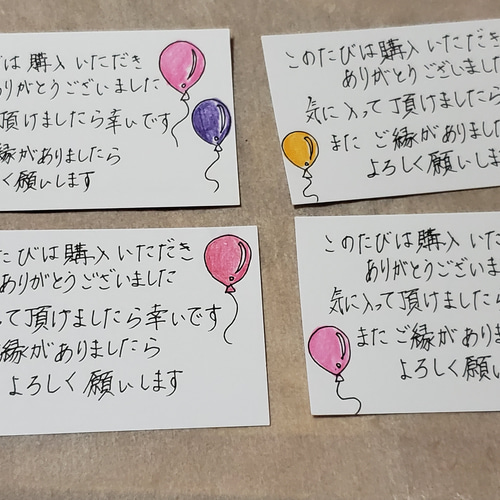 は購入いただき
りがとうございました
頂けましたら幸いです
縁がありましたら
く願いします
このたびは購入いただき
ありがとうございました
気に入って頂けましたら
またご縁がありました
よろしく願いしま
たびは購入いただき
ありがとうございました
って頂けましたら幸いです
縁がありましたら
よろしく願いします
このたびは購入いた
ありがとうございま
気に入って頂けました
またご縁がありま
よろしく願い